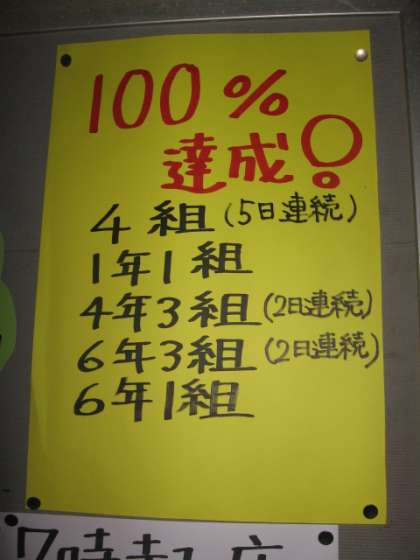 100%
達成!
4組(5日連続)
1年1組
4年3組(2日連続)
6年3組(2日連続)
6年1組
7時